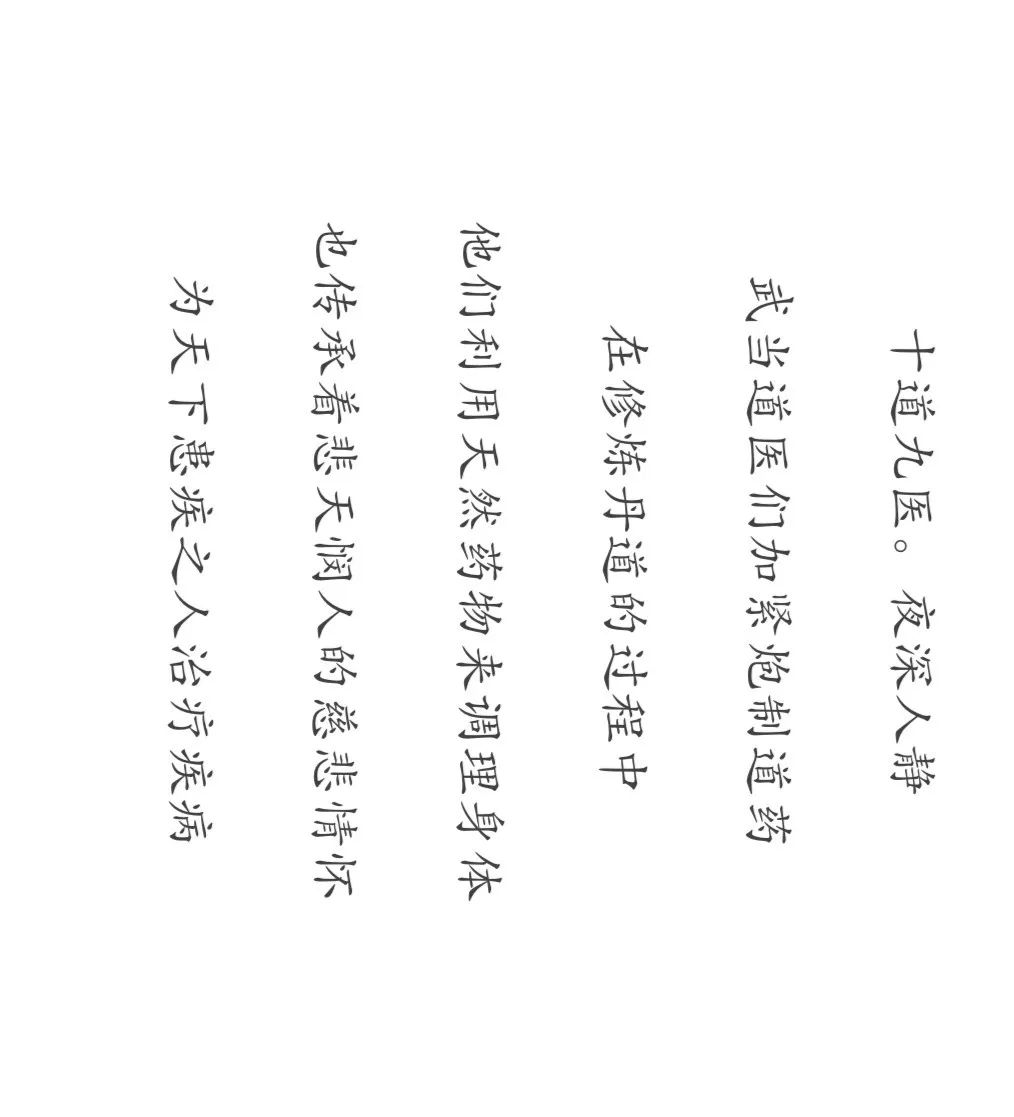 十道九医。夜深人静
武当道医们加紧炮制道药
在修炼丹道的过程中
他们利用天然药物来调理身体
也传承着悲天悯人的慈悲情怀
为天下患疾之人治疗疾病